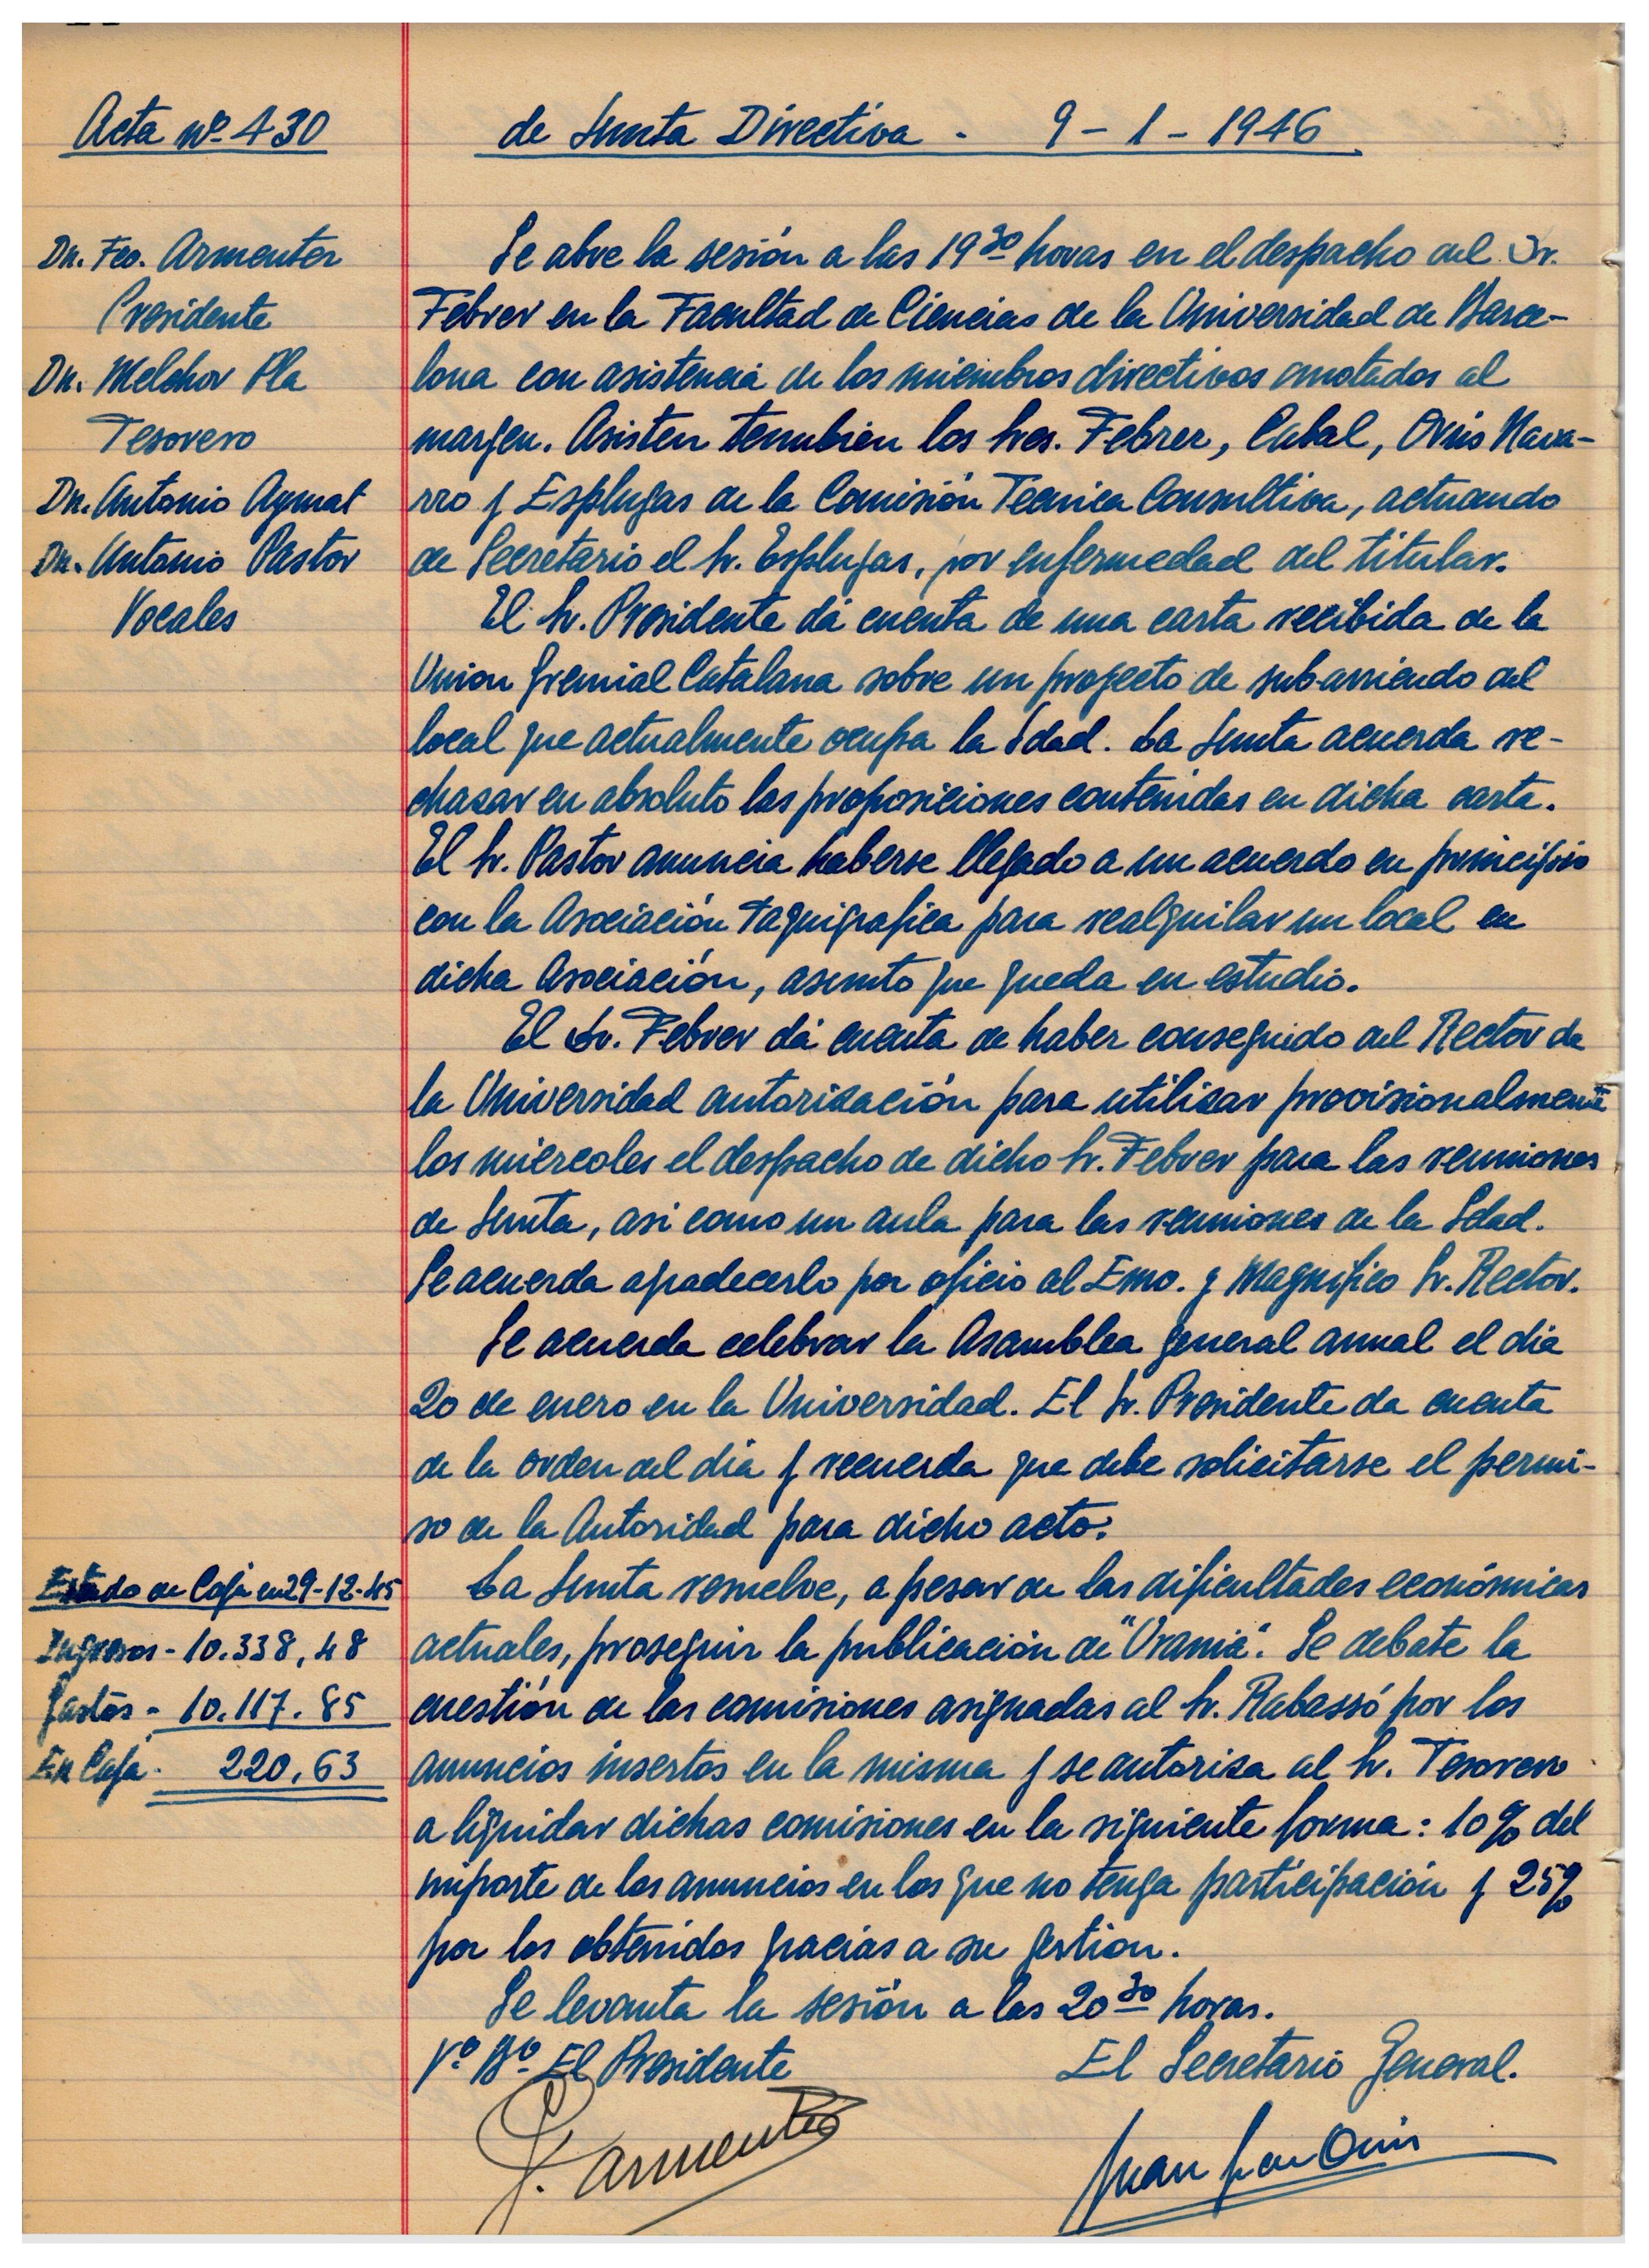 Acta nº 430
de Junta Directiva - 9-1-1946.
Dn. Fco. Armenter
Presidente
Dn. Melchor Pla
Tesorero
Dn. Antonio Aymat
Dn. Antonio Pastor
Vocales
Se abre la sesión a las 19 30 horas en el despacho del Sr.
Febrer en la Facultad de Ciencias de la Universidad de Barce-
lona con asistencia de los miembros directivos anotados al
margen. Asisten tambien los Sres. Febrer, Cabal, Orús Nava-
rro y Esplugas de la Comisión Tecnica Consultiva, actuando
de Secretario el Sr. Esplugas, por enfermedad del titular.
El Sr. Presidente dá cuenta de una carta recibida de la
Union Gremial Catalana sobre un proyecto de subarriendo del
local que actualmente ocupa la Sdad. La Junta acuerda re-
chazar en absoluto las proposiciones contenidas en dicha carta.
El Sr. Pastor anuncia haberse llegado a un acuerdo en principio
con la Asociación Taquigrafica para realquilar un local en
dicha Asociación, asunto que queda en estudio.
El Sr. Febrer dá cuenta de haber conseguido del Rector de
la Universidad autorización para utilizar provisionalmente
los miercoles el despacho de dicho Sr. Febrer para las reuniones
de Junta, asi como un aula para las reuniones de la Sdad.
Se acuerda agradecerlo por oficio al Exmo. y Magnifico Sr. Rector.
Se acuerda celebrar la Asamblea general anual el dia
20 de enero en la Universidad. El Sr. Presidente da cuenta
de la orden del dia y recuerda que debe solicitarse el permi-
so de la Autoridad para dicho acto.
La Junta resuelve, a pesar de las dificultades económicas
actuales, proseguir la publicación de "Urania". Se debate la
cuestión de las comisiones asignadas al Sr. Rabassó por los
anuncios insertos en la misma y se autoriza al Sr. Tesorero
a liquidar dichas comisiones en la siguiente forma: 10% del
importe de los anuncios en los que no tenga participación y 25%
por los obtenidos gracias a su gestion.
Se levanta la sesión a las 20 30 horas.
Estado de Caja en 29-12-45
Ingresos - 10.338,48
Gastos - 10.117.85
En Caja - 220,63
Vº Bº El Presidente
El Secretario General.
F. Armenter